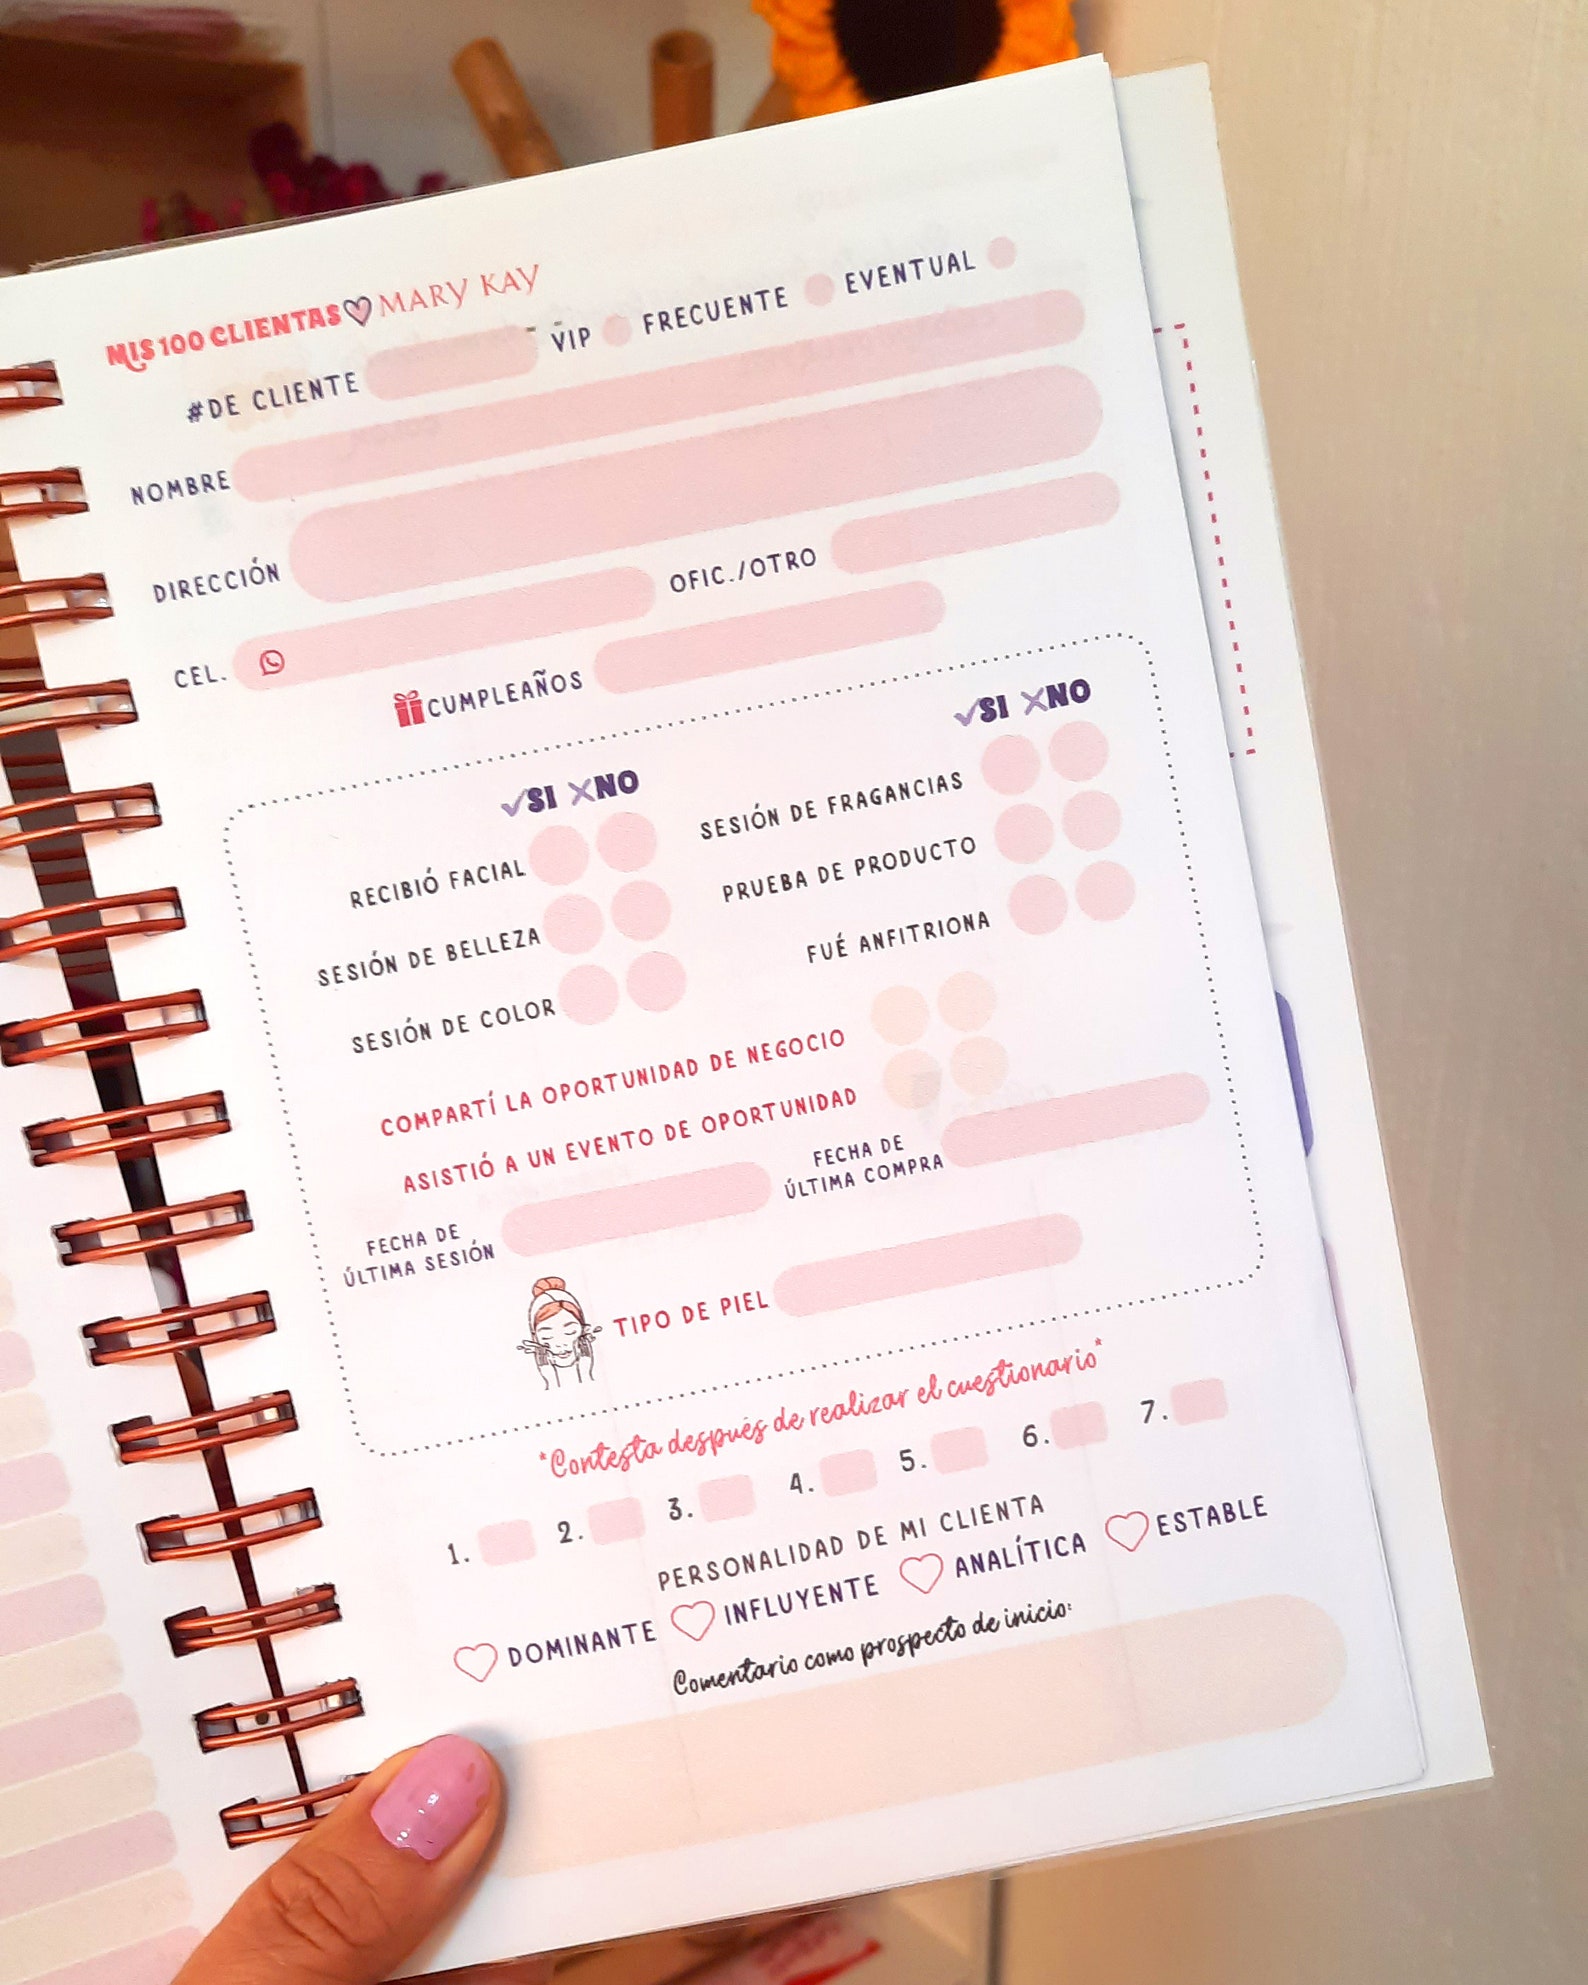 MIS 100 CLIENTAS MARY KAY
#DE CLIENTE VIP FRECUENTE EVENTUAL
NOMBRE
DIRECCIÓN
CEL. OFIC./OTRO
CUMPLEAÑOS
SI NO SI NO
RECIBIÓ FACIAL SESIÓN DE FRAGANCIAS
SESIÓN DE BELLEZA PRUEBA DE PRODUCTO
SESIÓN DE COLOR FUÉ ANFITRIONA
COMPARTÍ LA OPORTUNIDAD DE NEGOCIO
ASISTIÓ A UN EVENTO DE OPORTUNIDAD
FECHA DE
ÚLTIMA SESIÓN
FECHA DE
ÚLTIMA COMPRA
TIPO DE PIEL
*Contesta después de realizar el cuestionario*
1. 2. 3. 4. 5. 6. 7.
PERSONALIDAD DE MI CLIENTA
DOMINANTE INFLUYENTE ANALÍTICA ESTABLE
Comentario como prospecto de inicio: